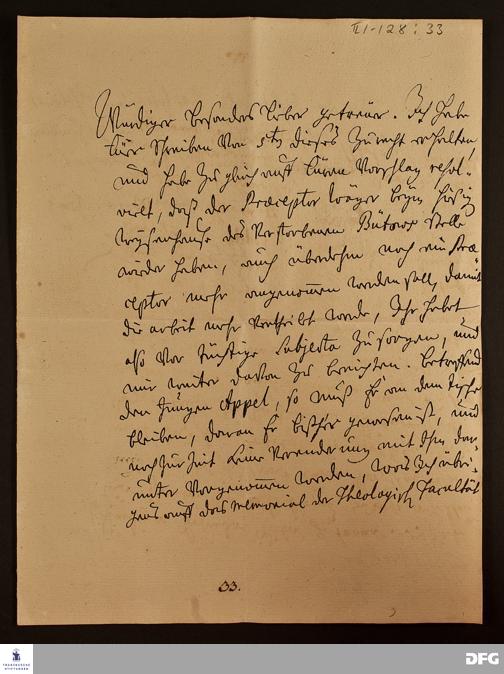 III-128:33
Würdiger besonders lieber getreuer. Ich habe
Euer Schreiben von 5t dieses zu recht erhalten,
und habe zugleich auff Euren Vorschlag resol-
virt, daß der Præceptor Wäger beym hiesig
Waysenhause des verstorbenen Bütows stelle
wieder haben, auch überdehm noch ein Præ-
ceptor mehr angenommen werden soll, damit
die arbeit mehr vertheilet werde, Ihr habet
also vor tüchtige Subjecta zu sorgen, und
mir weiter davon zu berichten. Betreffend
den jungen Appel, so muß Er an dem Tische
bleiben, daran Er bißher gewesen ist, und
noch zur Zeit keine Veränderung mit Ihm dar-
unter vorgenommen werden, was Ich übri-
gens auff das Memorial der Theologisch Facultät
33.
FRANCKESCHE
STIFTUNGEN
DFG